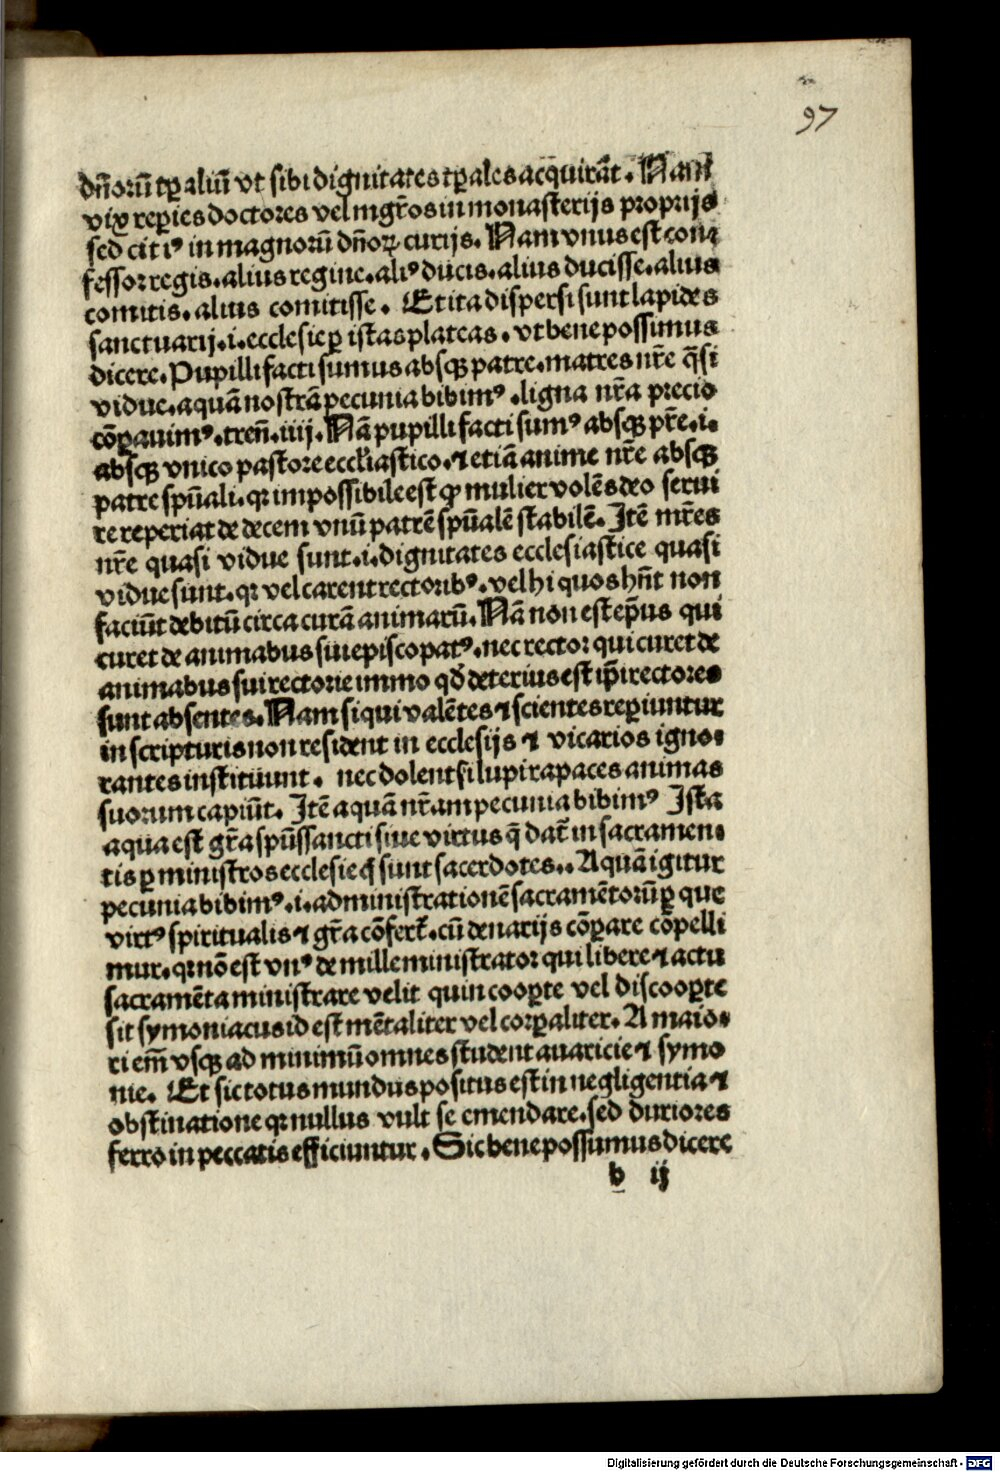 97
dñorũ tꝑaliũ vt sibi dignitates tꝑales acquirãt. Nam
vix reꝑies doctores vel mgr̃os in monasterijs proprijs
sed citiꝰ in magnorũ dñoꝝ curijs. Nam vnus est con⸗
fessor regis. alius regine. aliꝰ ducis. alius ducisse. alius
comitis. alius comitisse. Et ita dispersi sunt lapides
sanctuarij .i. ecclesie ꝑ istas plateas. vt bene possimus
dicere. Pupilli facti sumus absqꝫ patre. matres nr̃e q̃si
vidue. aquã nostrã pecunia bibimꝰ. ligna nr̃a precio
cõꝑauimꝰ. treñ. iiij. Nã pupilli facti sumꝰ absqꝫ pr̃e .i.
absqꝫ vnico pastore eccl̃iastico. ⁊ etiã anime nr̃e absqꝫ
patre spũali. qꝛ impossibile est ꝙ mulier volẽs deo serui
re reperiat de decem vnũ patrẽ spũalẽ stabilẽ. Itẽ mr̃es
nr̃e quasi vidue sunt .i. dignitates ecclesiastice quasi
vidue sunt. qꝛ vel carent rectoribꝰ. vel hi quos hñt non
faciũt debitũ circa curã animarũ. Nã non est ep̃us qui
curet de animabus sui episcopatꝰ. nec rector qui curet de
animabus sui rectorie immo qđ deterius est ip̃i rectores
sunt absentes. Nam si qui valẽtes ⁊ scientes reꝑiuntur
in scripturis non resident in ecclesijs ⁊ vicarios igno⸗
rantes instituunt. nec dolent si lupi rapaces animas
suorum capiũt. Itẽ aquã nr̃am pecunia bibimꝰ Ista
aqua est gr̃a spũssancti siue virtus q̃ dat̃ in sacramen⸗
tis ꝑ ministros ecclesie q̃ sunt sacerdotes.. Aquã igitur
pecunia bibimꝰ .i. administrationẽ sacramẽtorũ ꝑ que
virtꝰ spiritualis ⁊ gr̃a cõfert̃. cũ denarijs cõꝑare cõpelli
mur. qꝛ nõ est vnꝰ de mille ministrator qui libere ⁊ actu
sacramẽta ministrare velit quin cooꝑte vel discooꝑte
sit symoniacus id est mẽtaliter vel corꝑaliter. A maio⸗
ri em̃ vsqꝫ ad minimũ omnes student auaricie ⁊ symo
nie. Et sic totus mundus positus est in negligentia ⁊
obstinatione qꝛ nullus vult se emendare. sed duriores
ferro in peccatis efficiuntur. Sic bene possumus dicere
b ij
Digitalisierung gefördert durch die Deutsche Forschungsgemeinschaft - DFG